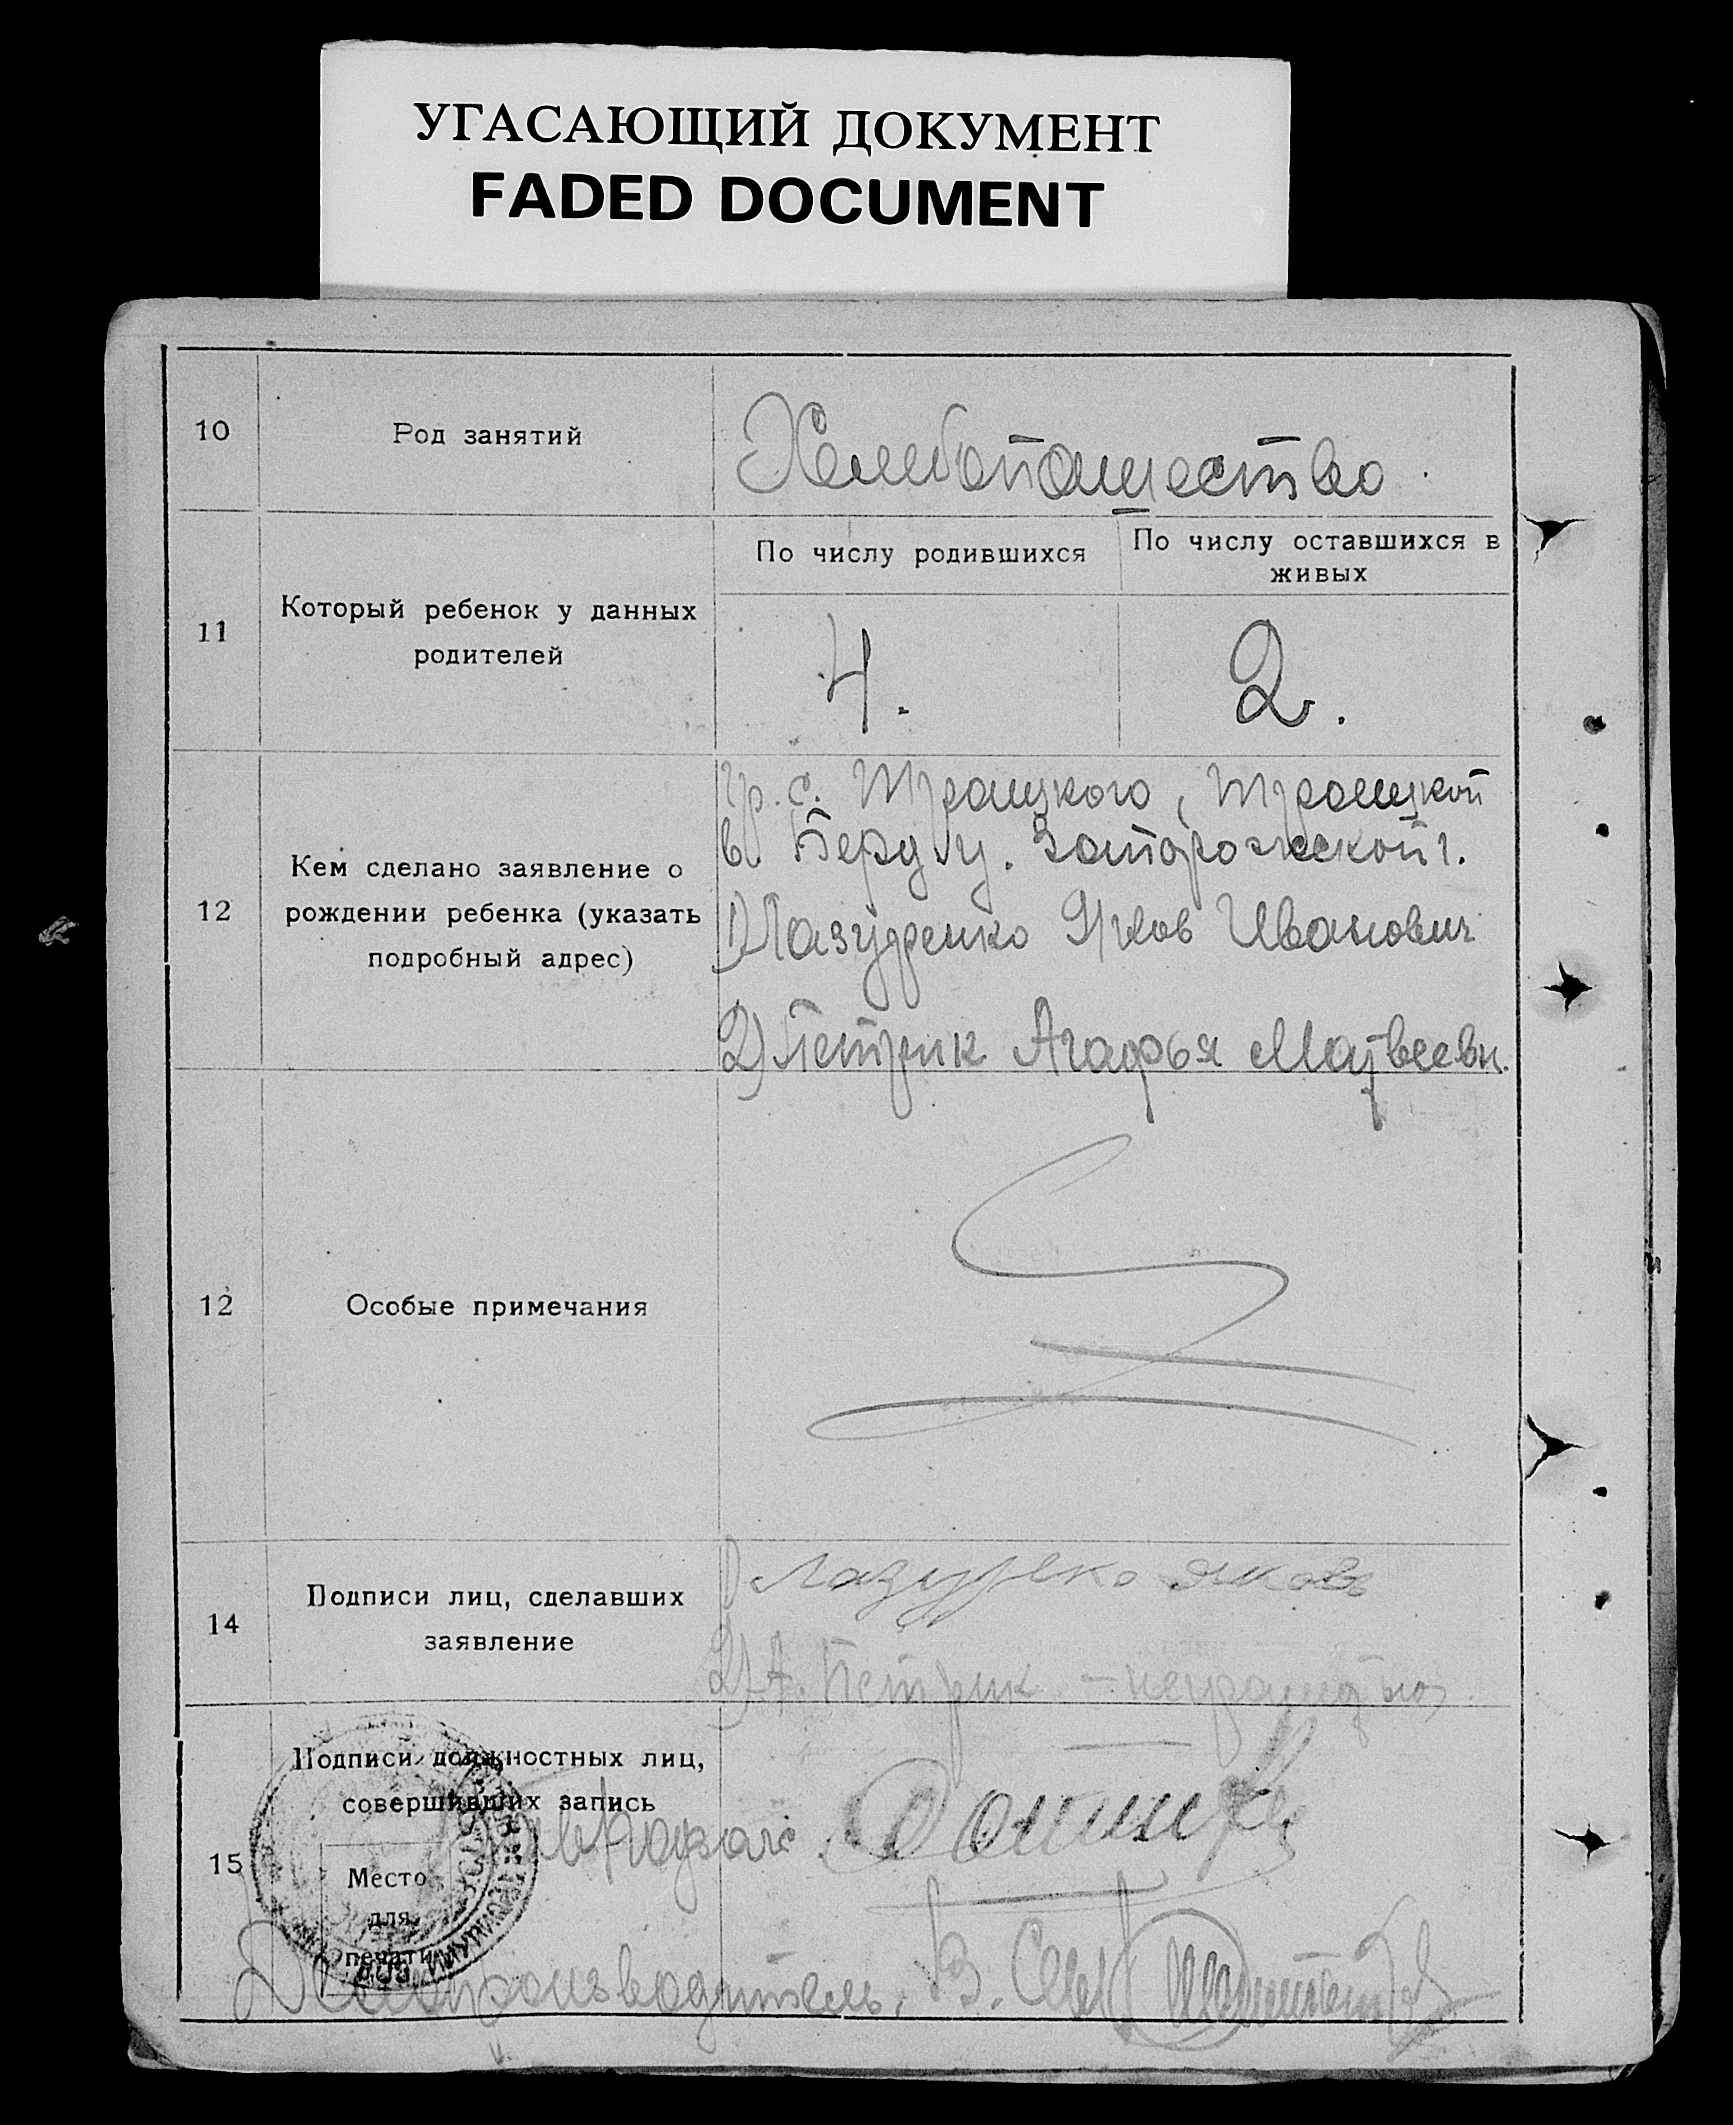 УГАСАЮЩИЙ ДОКУМЕНТ
FADED DOCUMENT
10 Род занятий Хлебопашество
11 Который ребенок у данных родителей
По числу родившихся
По числу оставшихся в живых
4. 2.
12 Кем сделано заявление о рождении ребенка (указать подробный адрес)
гр. с. Троицкого, Троицкой
в. Берд у. Запорожской г.
1) Лазуренко Яков Иванович
2) Петрик Агафья Матвеевн.
12 Особые примечания
14 Подписи лиц, сделавших заявление
1) Лазуреко Яков
2) А. Петрик - неграмотная
15 Подписи должностных лиц, совершивших запись
Место для печати
Делопроизводитель